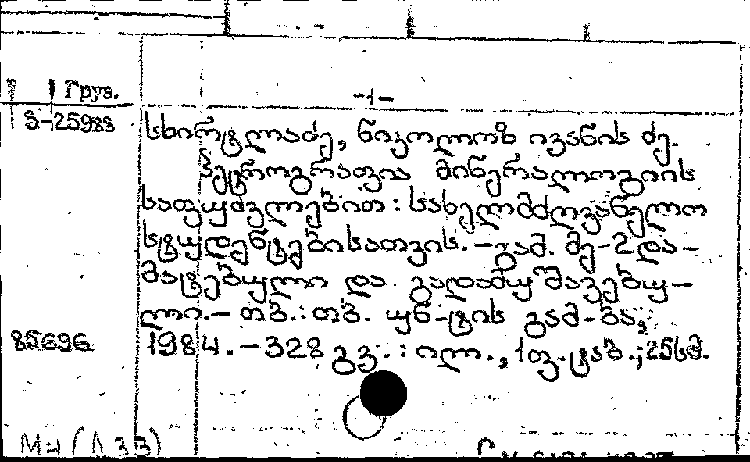 Груз.
-1-
3-25983
სხირტლაძე, ნიკოლოზ ივანის ძე.
პეტროგრაფია მინერალოგიის
საფუძვლებით: სახელმძღვანელო
სტუდენტებისათვის.-გამ. მე-2 და-
მატებული და გადამუშავებუ-
ლი.- თბ.: თბ. უნ-ტის გამ-ბა,
85696 1984.-328 გვ.: ილ., 1ფ.ტაბ.; 25სმ.